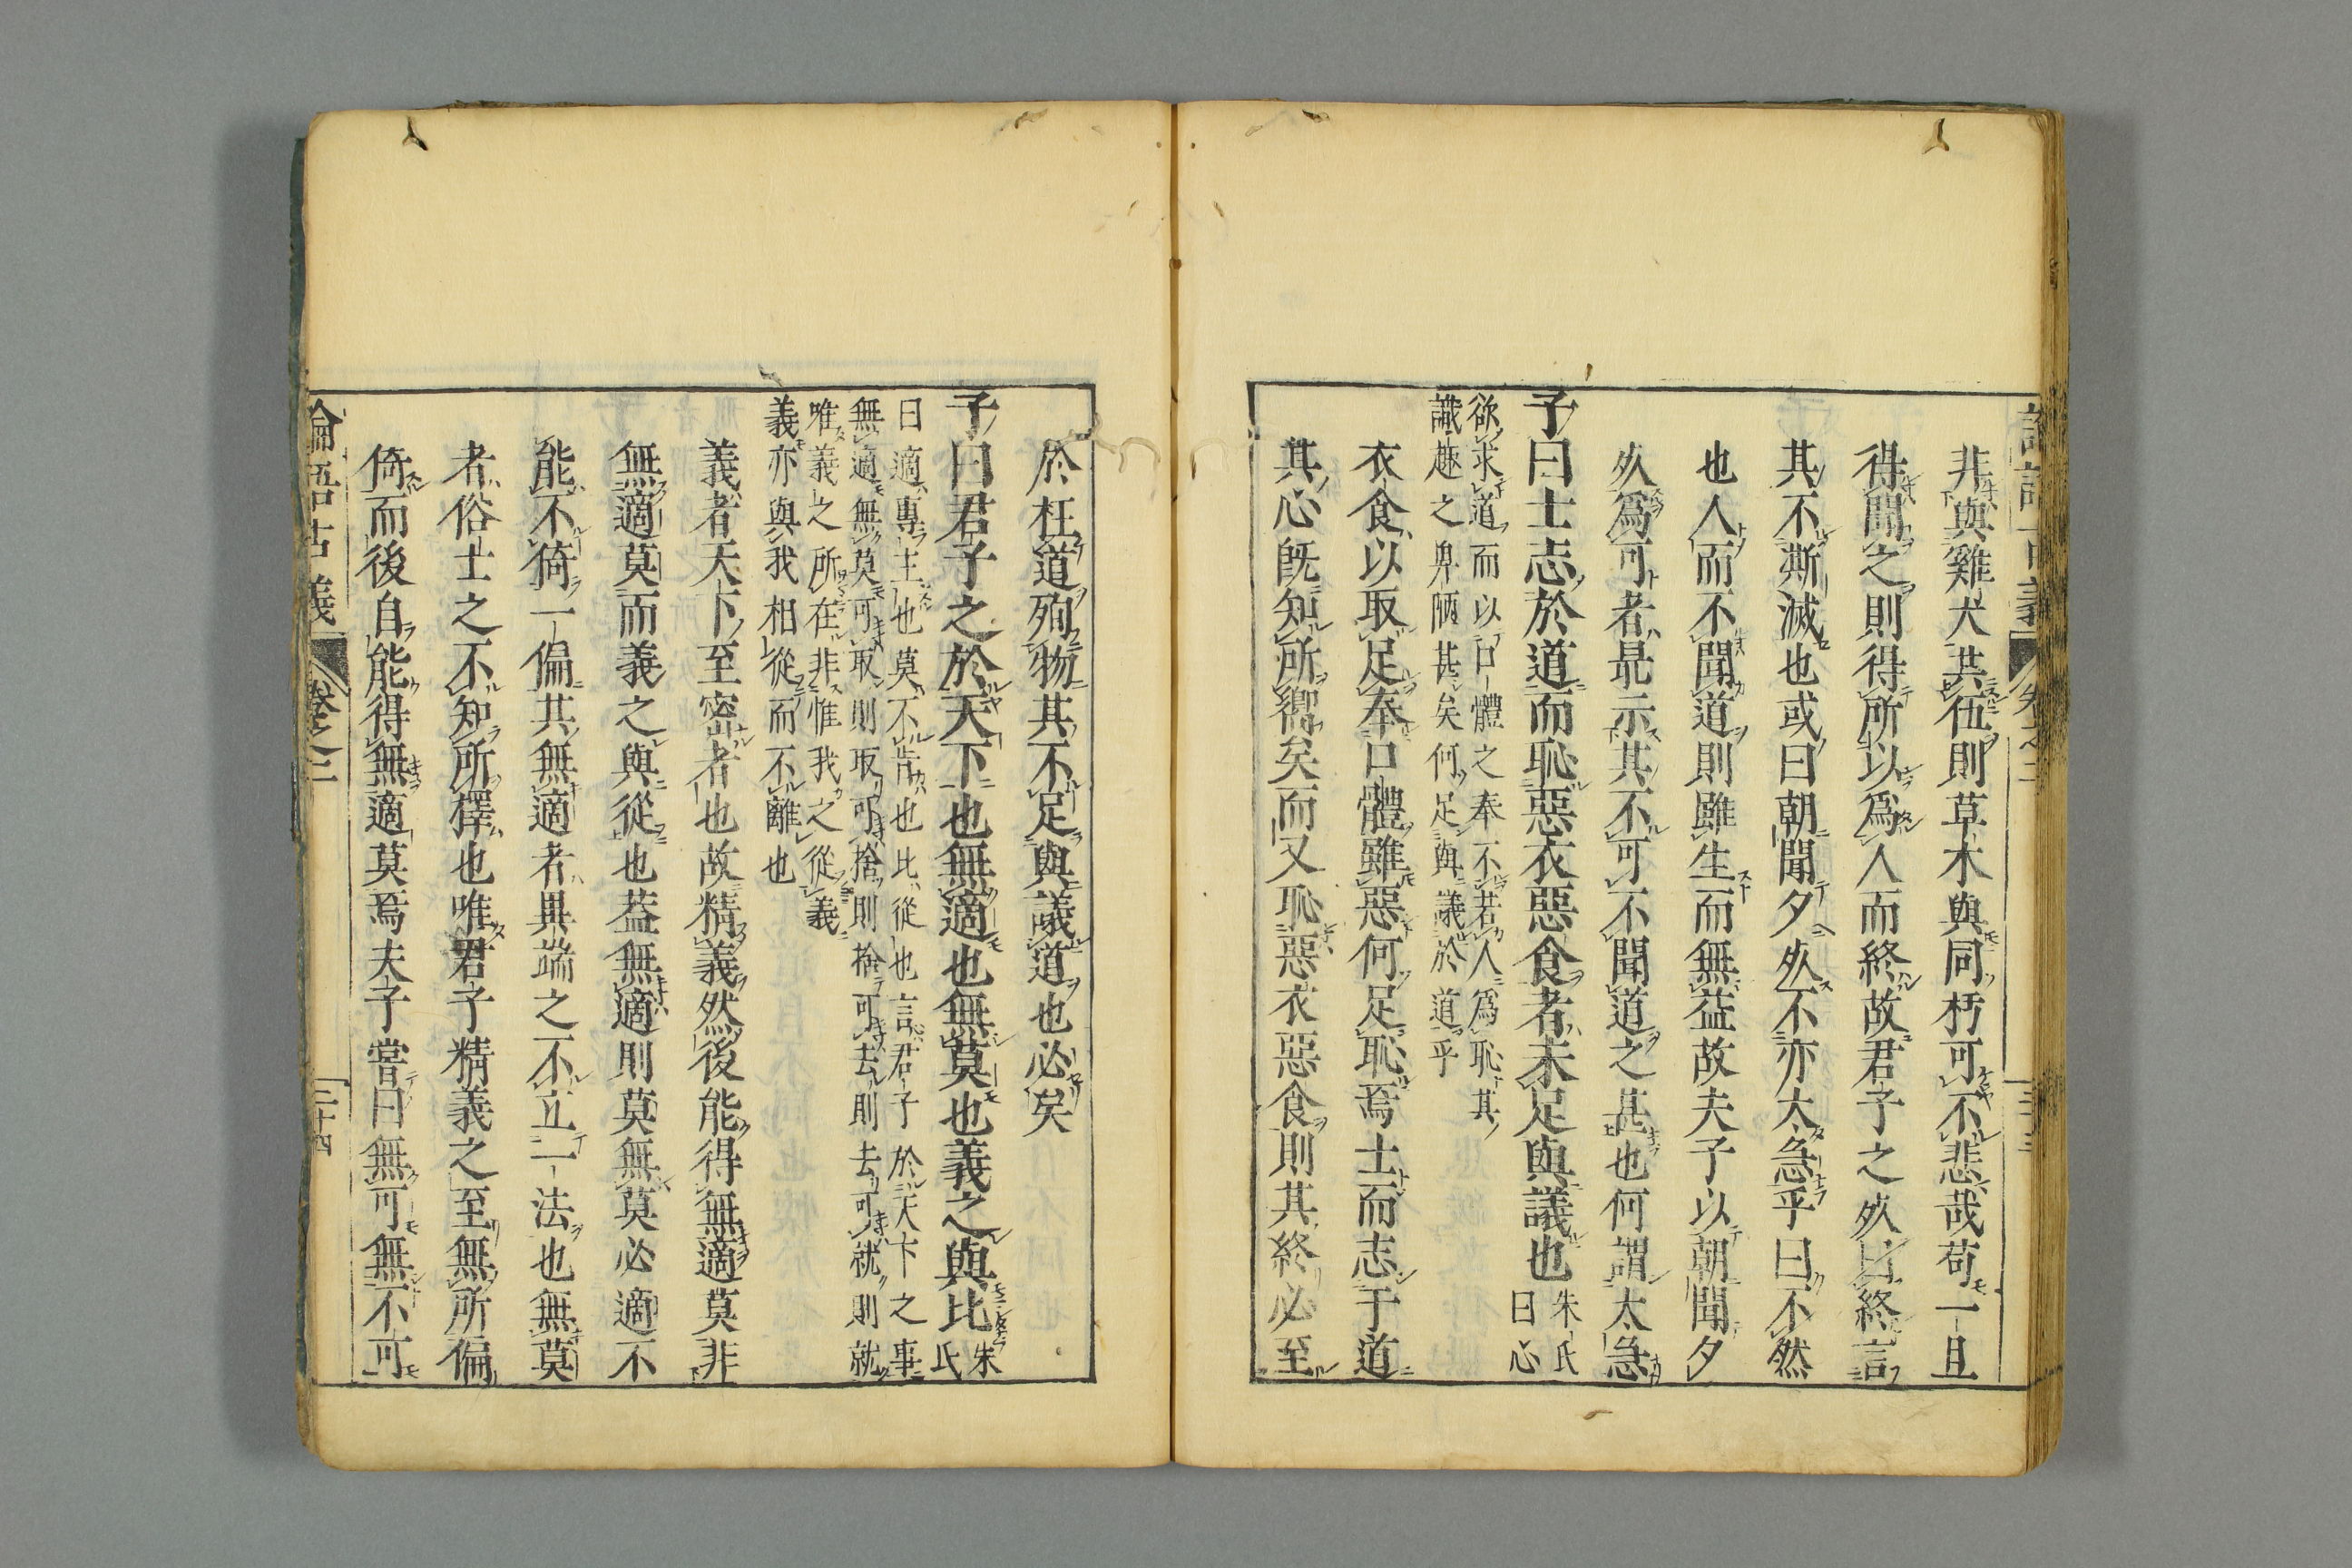 非與雞犬共伍則草木與同朽可不悲哉苟一旦
得聞之則得所以爲人而終故君子之死曰終言
其不澌滅也或曰朝聞夕死不亦太急乎曰不然
也人而不聞道則雖生而無益故夫子以朝聞夕
死爲可者是示其不可不聞道之甚也何謂太急
子曰士志於道而恥惡衣惡食者未足與議也朱氏曰心
欲求道而以口體之奉不若人爲恥其
識趣之卑陋甚矣何足與議於道乎
衣食以取足奉口體雖惡何足恥焉士而志于道
其心旣知所嚮矣而又恥惡衣惡食則其終必至
於枉道殉物其不足與議道也必矣
子曰君子之於天下也無適也無莫也義之與比朱氏
曰適專主也莫不肯也比從也言君子於天下之事
無適無莫可取則取可捨則捨可去則去可就則就
唯義之所在非惟我之從義
義亦與我相從而不離也
義者天下至密者也故精義然後能得無適莫非
無適莫而義之與從也蓋無適則莫無莫必適不
能不倚一偏其無適者異端之不立一法也無莫
者俗士之不知所擇也唯君子精義之至無所偏
倚而後自能得無適莫焉夫子嘗曰無可無不可
論語古義 卷之二 三十四